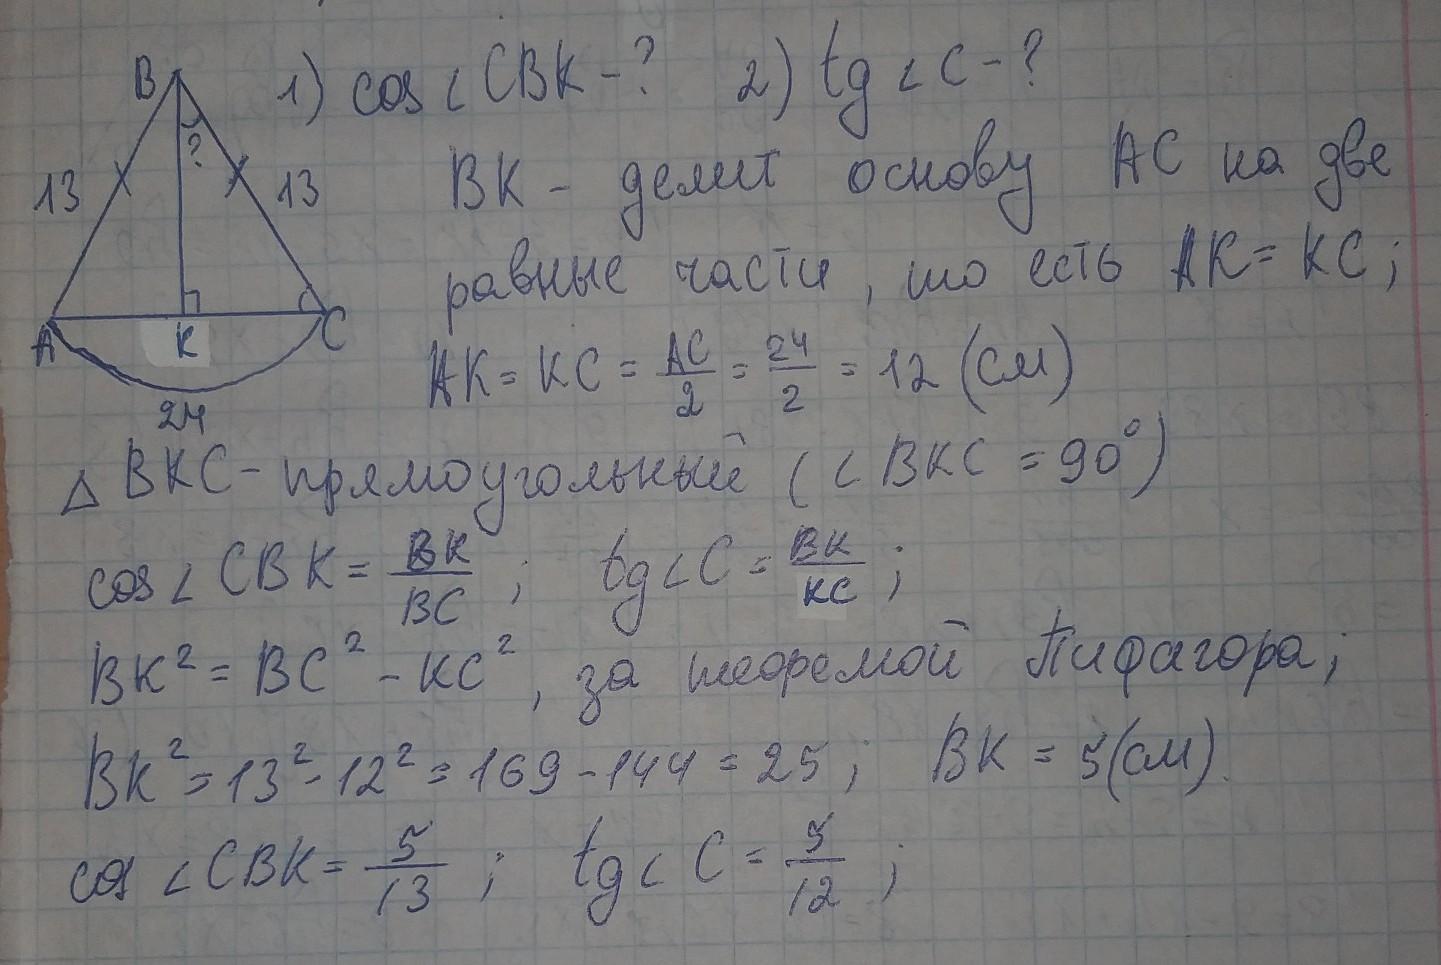 B 1) cos ∠CBK - ? 2) tg ∠C - ?
?
13 13 BK - делит основу AC на две
равные части, то есть AK = KC;
A K C
AK = KC = AC/2 = 24/2 = 12 (см)
24
△ BKC - прямоугольный (∠BKC = 90°)
cos ∠CBK = BK/BC ; tg ∠C = BK/KC ;
BK² = BC² - KC², за теоремой Пифагора;
BK² = 13² - 12² = 169 - 144 = 25 ; BK = 5 (см).
cos ∠CBK = 5/13 ; tg ∠C = 5/12 ;